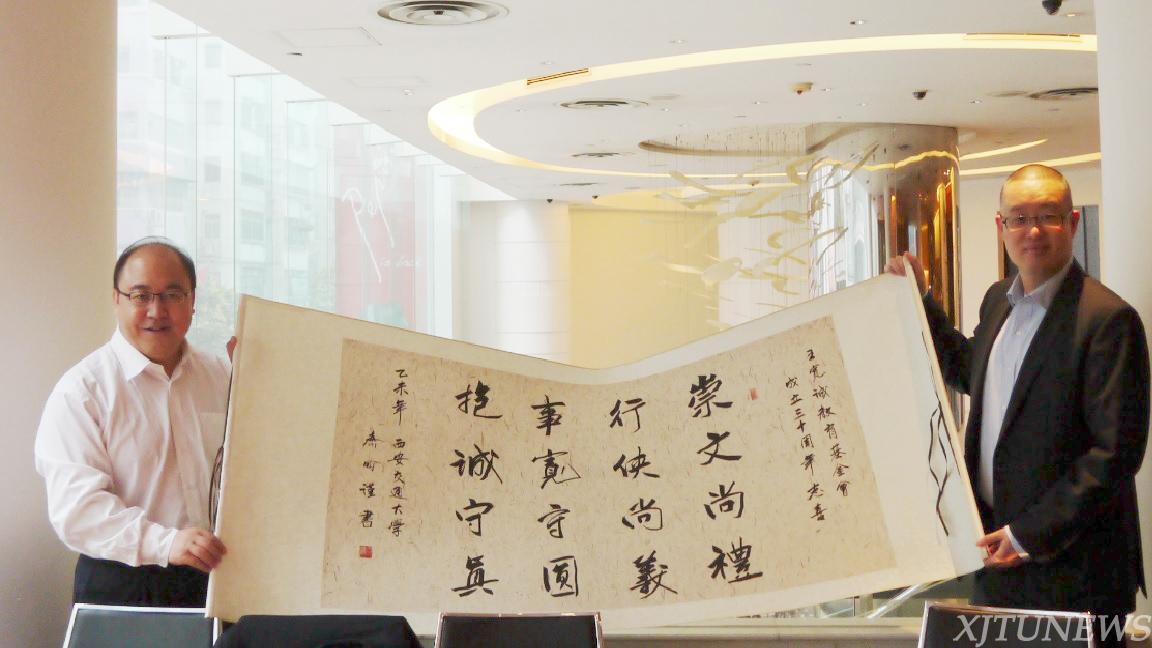 王宽诚教育基金會
成立三十周年志喜
崇文尚禮
行侠尚義
事寬守圓
抱诚守真
乙未年 西安交通大学
谨書
is back
XJTUNEWS